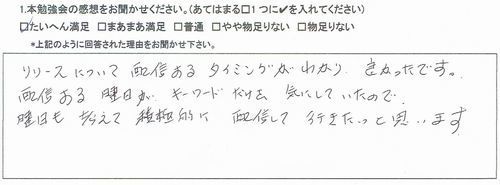 1.本勉強会の感想をお聞かせください。(あてはまる□1つに✔を入れてください)
☑たいへん満足 □まあまあ満足 □普通 □やや物足りない □物足りない
*上記のように回答された理由をお聞かせ下さい。
リリースについて 配信ある タイミングがわかり 良かったです。
配信ある 曜日が キーワード だけを 気にしていたので
曜日も 考えて 積極的に 配信して 行きたいと思います